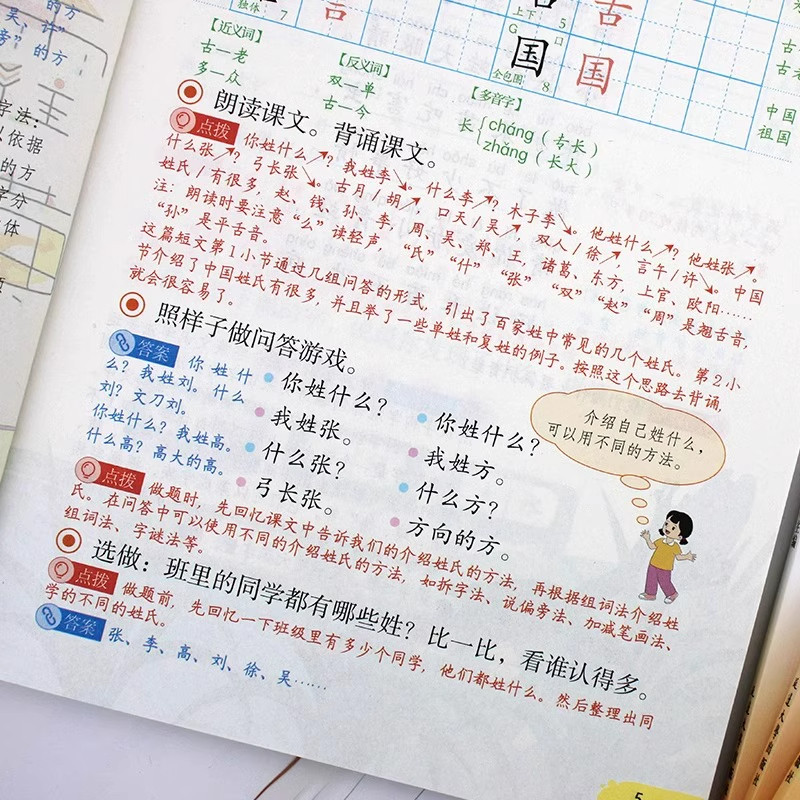 的方
吴、许”
旁”的方
字法：
以依据
的方
字分
体
独体 7
上下 5
G 口
国 国
全包围 8
中国
祖国
【近义词】
古—老
多—众
【反义词】
双—单
古—今
【多音字】
长
cháng（古长）
zhǎng（长大）
朗读课文。背诵课文。
点拨 你姓什么？我姓李。什么李？木子李。他姓什么？他姓张。
什么张？弓长张。古月/胡，口天/吴，双人/徐，言午/许。中国
姓氏/有很多，赵、钱、孙、李，周、吴、郑、王，诸葛、东方，上官、欧阳……
注：朗读时要注意“么”读轻声，“氏”“什”“张”“双”“赵”“周”是翘舌音，
“孙”是平舌音。
这篇短文第1小节通过几组问答的形式，引出了百家姓中常见的几个姓氏。第2小
节介绍了中国姓氏有很多，并且举了一些单姓和复姓的例子。按照这个思路去背诵，
就会很容易了。
照样子做问答游戏。
答案 你姓什
么？我姓刘。什么
刘？文刀刘。
你姓什么？我姓高。
什么高？高大的高。
你姓什么？
我姓张。
什么张？
弓长张。
你姓什么？
我姓方。
什么方？
方向的方。
介绍自己姓什么，
可以用不同的方法。
点拨 做题时，先回忆课文中告诉我们的介绍姓氏的方法，再根据组词法介绍姓
氏。在问答中可以使用不同的介绍姓氏的方法，如拆字法、说偏旁法、加减笔画法、
组词法、字谜法等。
选做：班里的同学都有哪些姓？比一比，看谁认得多。
点拨 做题前，先回忆一下班级里有多少个同学，他们都姓什么。然后整理出同
学的不同的姓氏。
答案 张、李、高、刘、徐、吴……
5